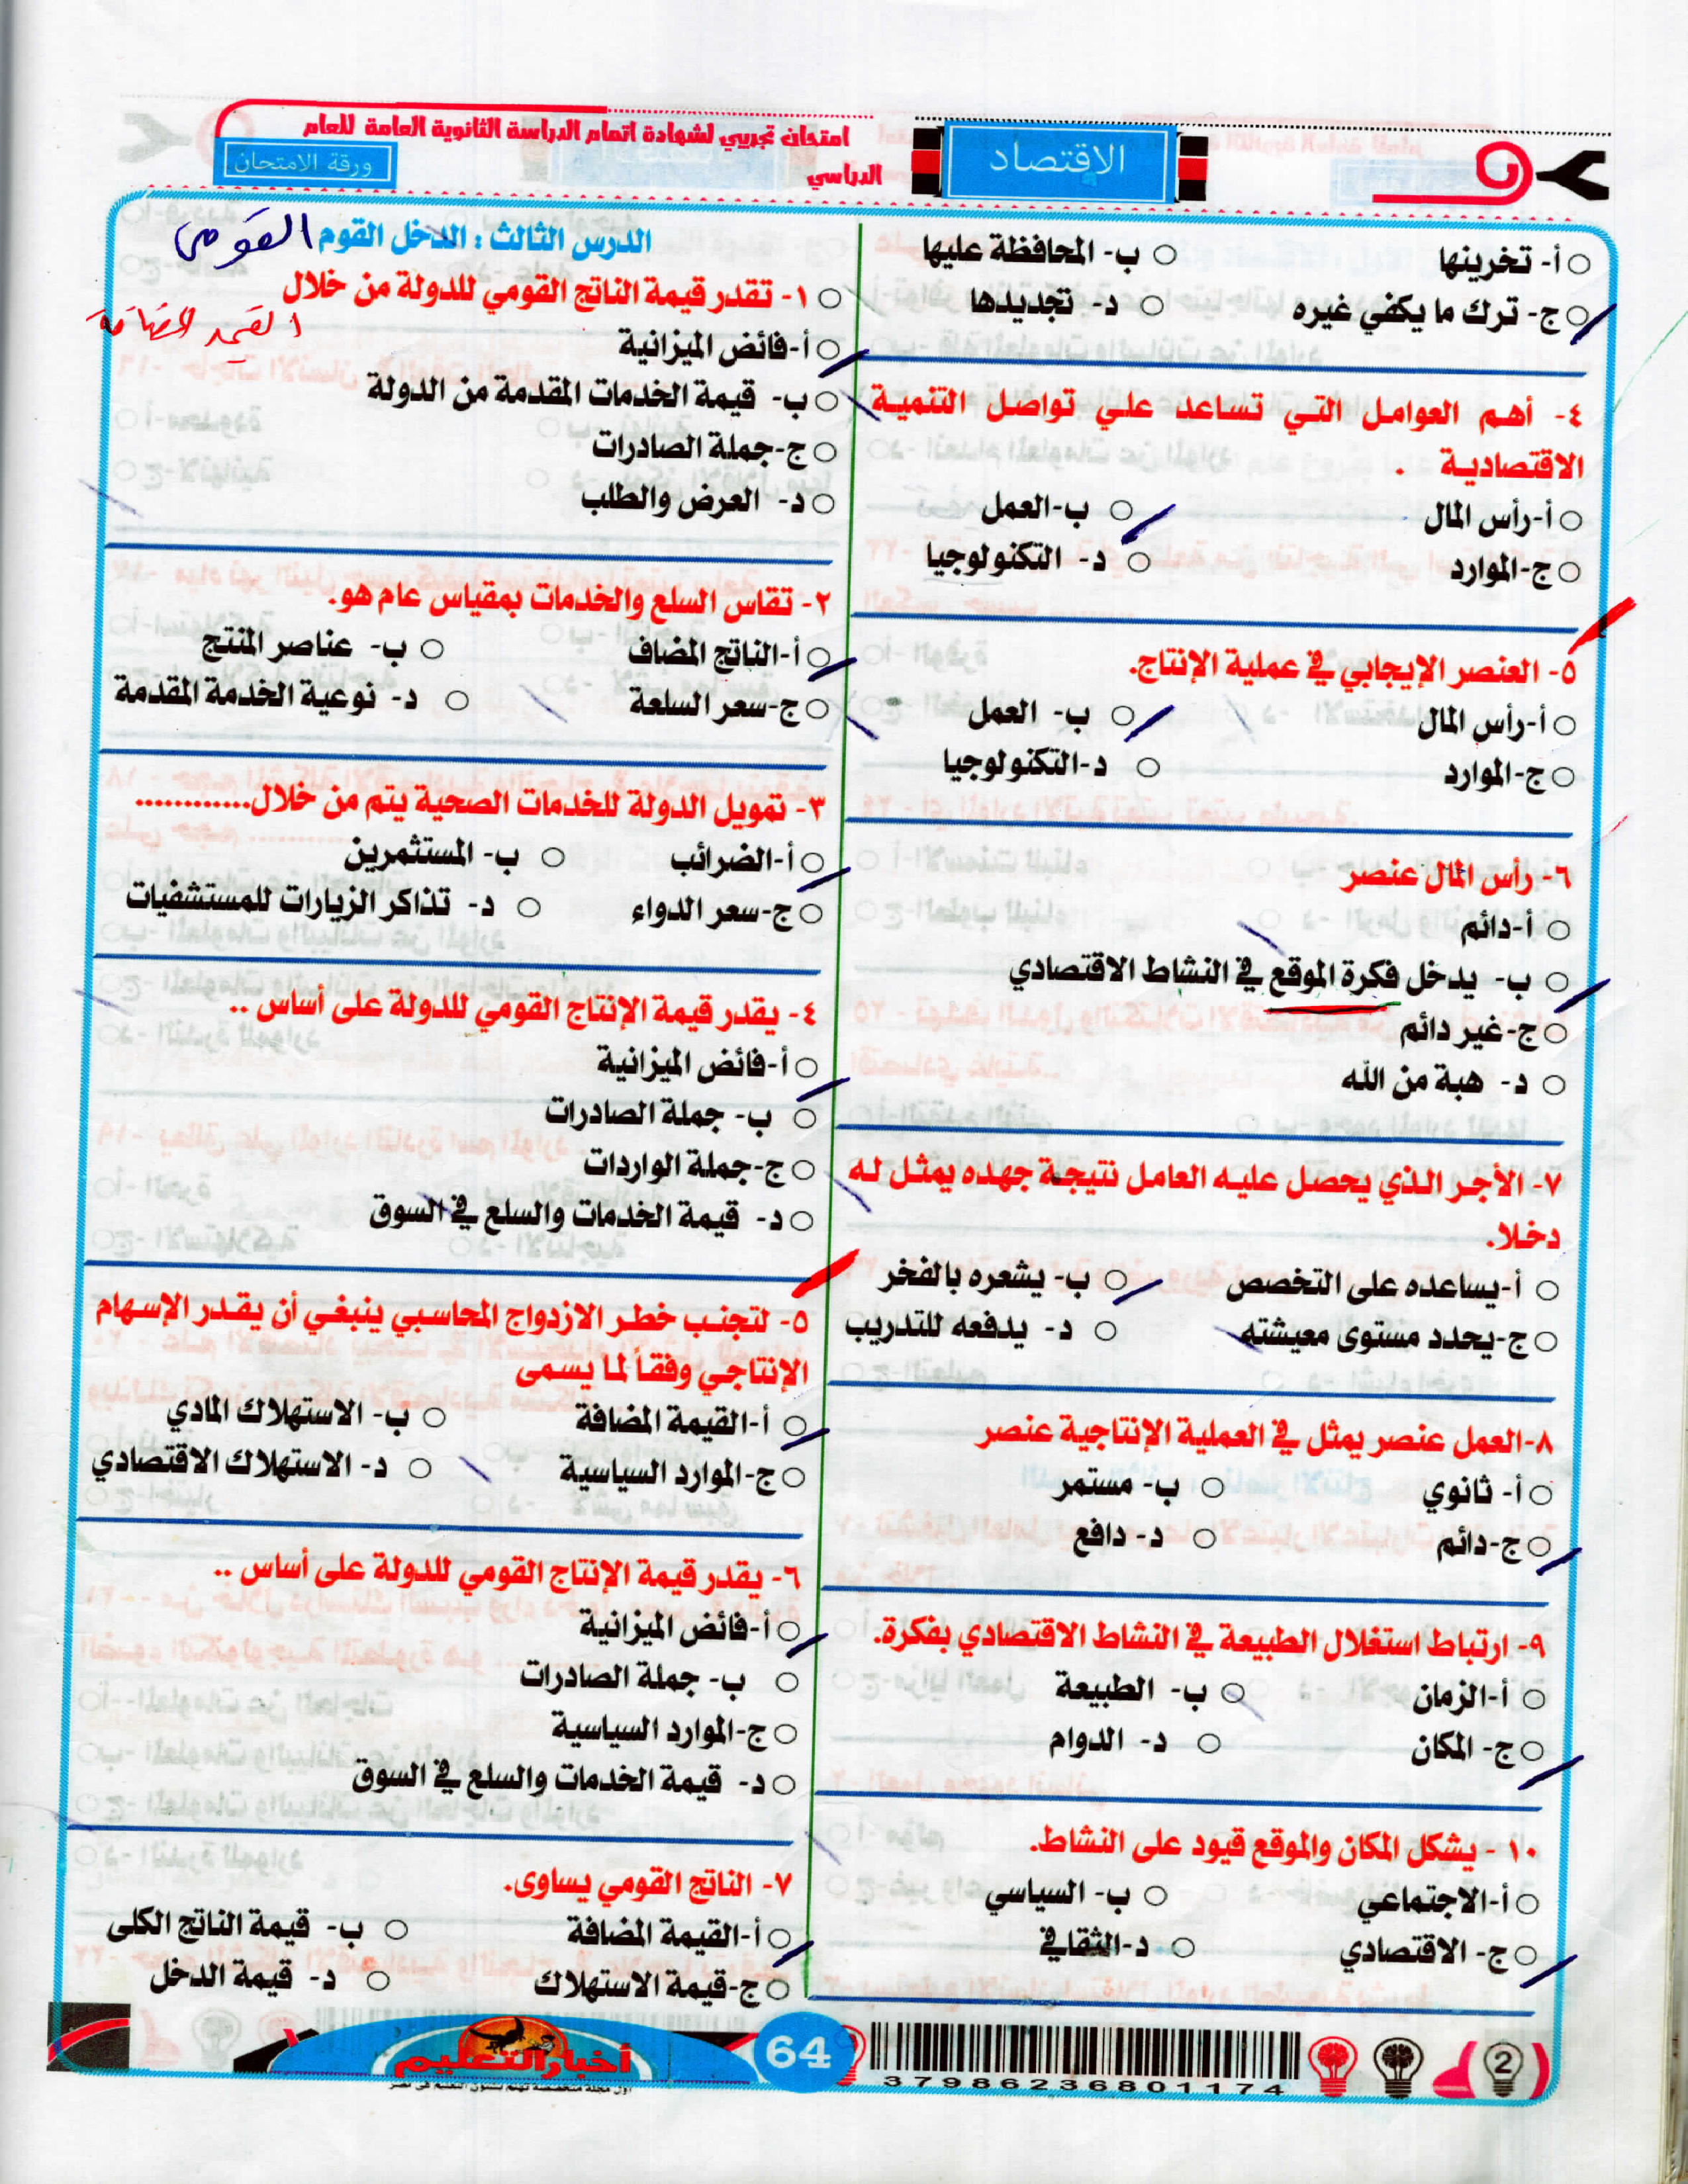 امتحان تجريبي لشهادة اتمام الدراسة الثانوية العامة للعام
الدراسي
ورقة الامتحان
الاقتصاد
أ- تخرينها
ب- المحافظة عليها
ج- ترك ما يكفي غيره
د- تجديدها
٤- أهم العوامل التي تساعد علي تواصل التنمية
الاقتصادية .
أ-رأس المال
ب-العمل
ج-الموارد
د- التكنولوجيا
٥- العنصر الإيجابي في عملية الإنتاج.
أ-رأس المال
ب- العمل
ج-الموارد
د-التكنولوجيا
٦- رأس المال عنصر
أ-دائم
ب- يدخل فكرة الموقع في النشاط الاقتصادي
ج-غير دائم
د- هبة من الله
٧- الأجر الذي يحصل عليه العامل نتيجة جهده يمثل له
دخلا.
أ-يساعده على التخصص
ب- يشعره بالفخر
ج-يحدد مستوى معيشته
د- يدفعه للتدريب
٨-العمل عنصر يمثل في العملية الإنتاجية عنصر
أ- ثانوي
ب- مستمر
ج-دائم
د- دافع
٩- ارتباط استغلال الطبيعة في النشاط الاقتصادي بفكرة.
أ-الزمان
ب- الطبيعة
ج- المكان
د- الدوام
١٠- يشكل المكان والموقع قيود على النشاط.
أ-الاجتماعي
ب- السياسي
ج- الاقتصادي
د-الثقافي
الدرس الثالث : الدخل القوم القومى
١- تقدر قيمة الناتج القومي للدولة من خلال
القيمة المضافة
أ-فائض الميزانية
ب- قيمة الخدمات المقدمة من الدولة
ج-جملة الصادرات
د- العرض والطلب
٢- تقاس السلع والخدمات بمقياس عام هو.
أ-الناتج المضاف
ب- عناصر المنتج
ج-سعر السلعة
د- نوعية الخدمة المقدمة
٣- تمويل الدولة للخدمات الصحية يتم من خلال............
أ-الضرائب
ب- المستثمرين
ج-سعر الدواء
د- تذاكر الزيارات للمستشفيات
٤- يقدر قيمة الإنتاج القومي للدولة على أساس ..
أ-فائض الميزانية
ب- جملة الصادرات
ج-جملة الواردات
د- قيمة الخدمات والسلع في السوق
٥- لتجنب خطر الازدواج المحاسبي ينبغي أن يقدر الإسهام
الإنتاجي وفقاً لما يسمى
أ-القيمة المضافة
ب- الاستهلاك المادي
ج-الموارد السياسية
د- الاستهلاك الاقتصادي
٦- يقدر قيمة الإنتاج القومي للدولة على أساس ..
أ-فائض الميزانية
ب- جملة الصادرات
ج-الموارد السياسية
د- قيمة الخدمات والسلع في السوق
٧- الناتج القومي يساوى.
أ-القيمة المضافة
ب- قيمة الناتج الكلى
ج-قيمة الاستهلاك
د- قيمة الدخل
أخبار التعليم
أول مجلة متخصصة تهتم بشئون التعليم فى مصر
64
37986236801174
2